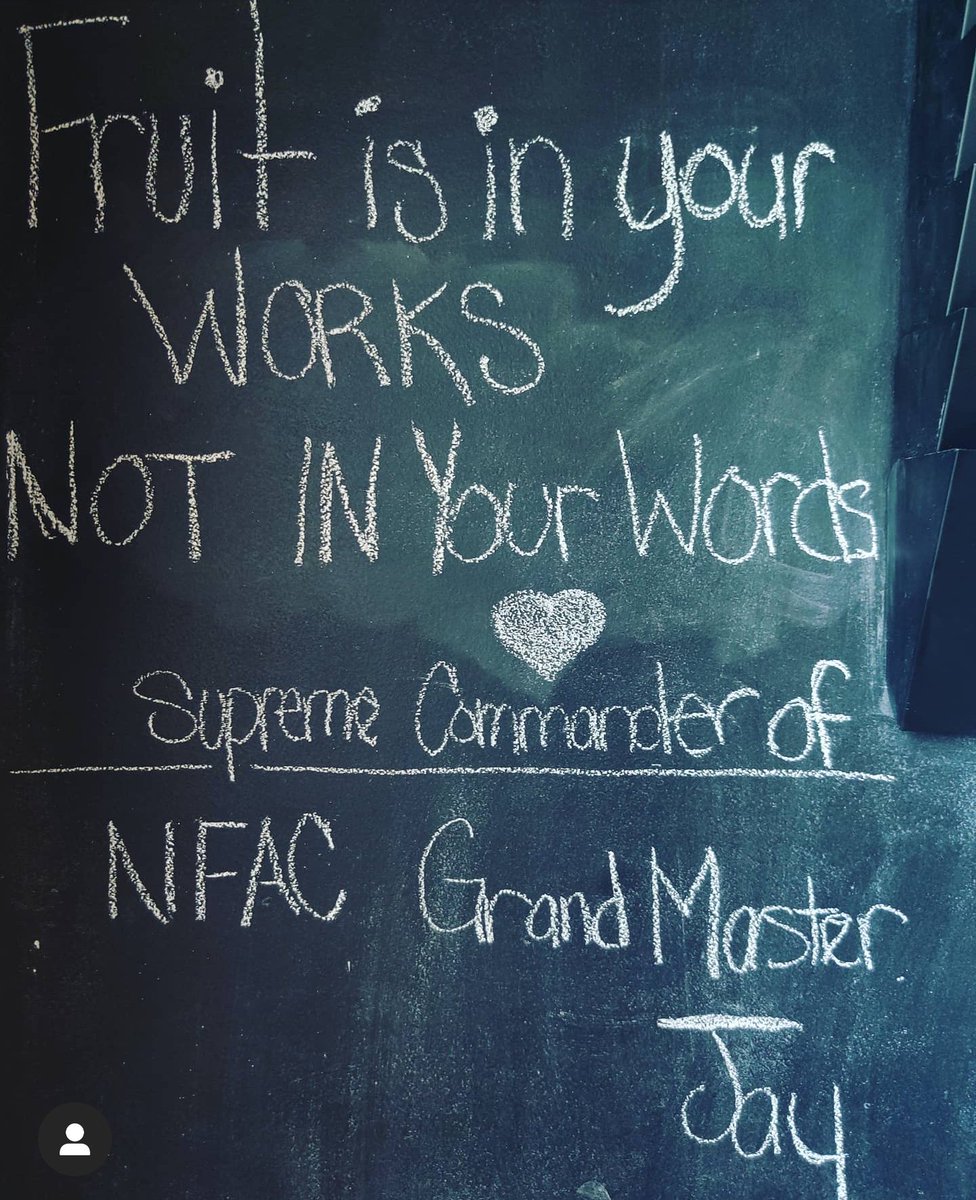 Fruit is in your
WORKS
NOT IN Your Words
Supreme Commander of
NFAC Grand Master
Jay